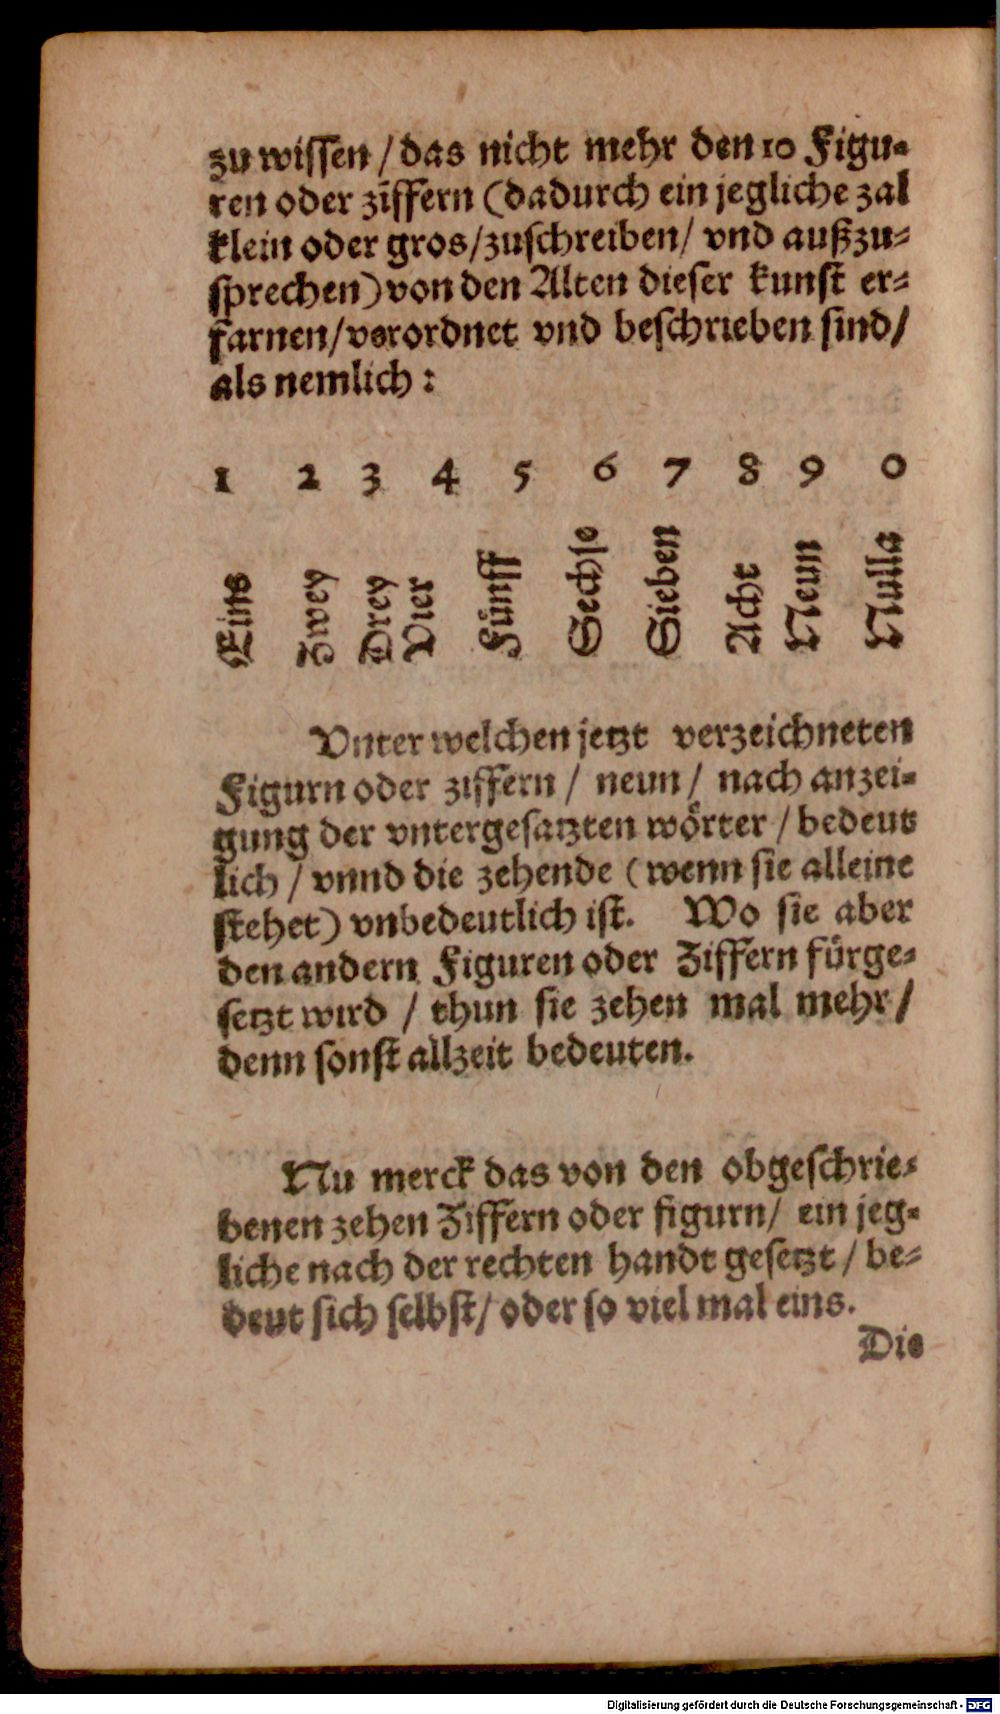 zu wissen / das nicht mehr den 10 Figu-
ren oder ziffern (dadurch ein jegliche zal
klein oder gros / zuschreiben / vnd außzu-
sprechen) von den Alten dieser kunst er-
farnen / verordnet vnd beschrieben sind /
als nemlich :
1 2 3 4 5 6 7 8 9 0
Eins Zwey Drey Vier Fünff Sechse Sieben Acht Neun Nulla
Vnter welchen jetzt verzeichneten
Figurn oder ziffern / neun / nach anzei-
gung der vntergesatzten wörter / bedeut
lich / vnnd die zehende (wenn sie alleine
stehet) vnbedeutlich ist. Wo sie aber
den andern Figuren oder Ziffern fürge-
setzt wird / thun sie zehen mal mehr /
denn sonst allzeit bedeuten.
Nu merck das von den obgeschrie-
benen zehen Ziffern oder figurn / ein jeg-
liche nach der rechten handt gesetzt / be-
deut sich selbst / oder so viel mal eins.
Die
Digitalisierung gefördert durch die Deutsche Forschungsgemeinschaft - DFG